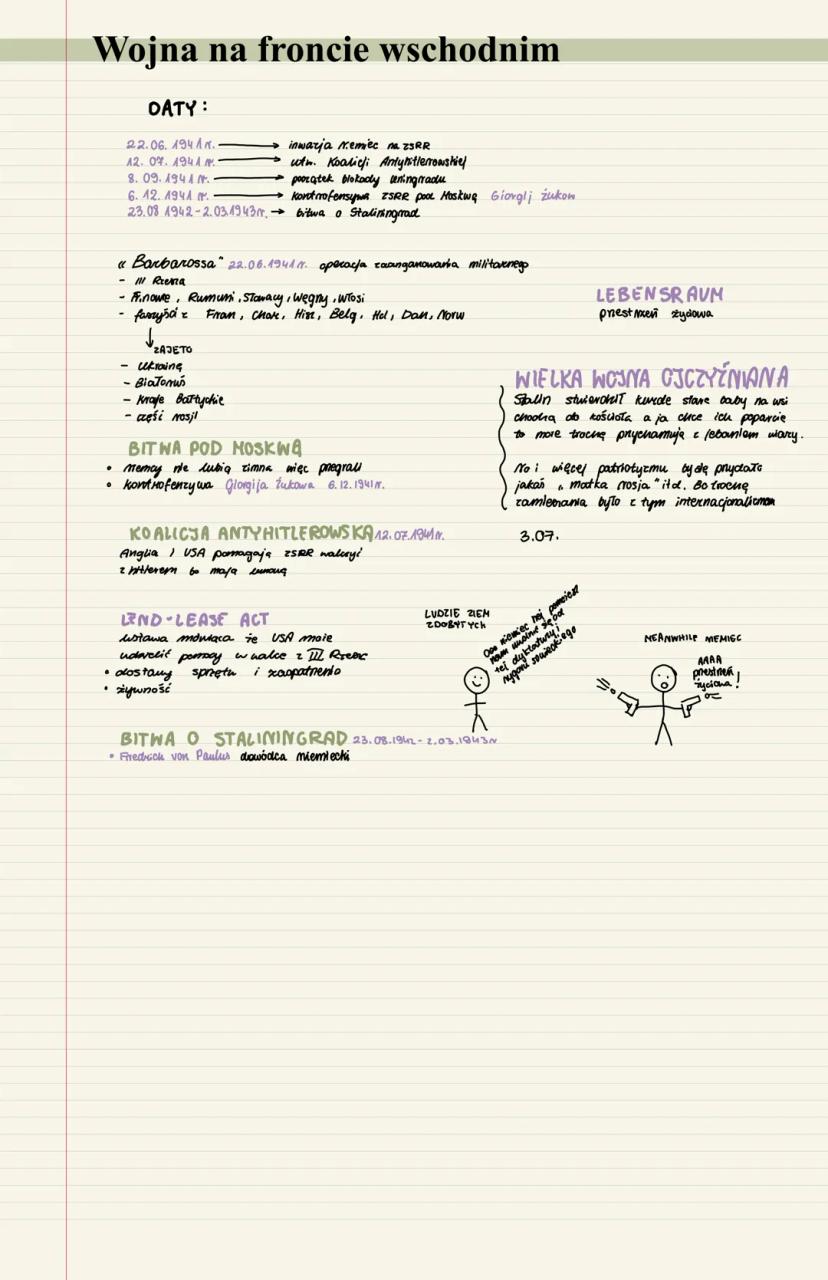 Wojna na froncie wschodnim
DATY:
22.06.1941r. → inwazja Niemiec na ZSRR
12.07.1941r. → utw. Koalicji Antyhitlerowskiej
8.09.1941r. → początek blokady Leningradu
6.12.1941r. → kontrofensywa ZSRR pod Moskwą Giorgij Żukow
23.08 1942-2.03.1943r. → bitwa o Staliningrad
"Barbarossa" 22.06.1941r. operacja zaangażowania militarnego
- III Rzesza
- Finowie, Rumuni, Słowacy, Węgry, Włosi
- faszyści z Fran, Chor, Hisz, Belg, Hol, Dan, Norw
ZAJĘTO
- Ukrainę
- Białoruś
- Kraje Bałtyckie
- część rosji
LEBENSRAUM
przestrzeń życiowa
WIELKA WOJNA OJCZYŹNIANA
Stalin stwierdził kurde stare baby na wsi
chodzą do kościoła a ja chce ich poparcie
to może trochę przychamuję z jebaniem wiary.
No i więcej patriotyzmu by się przydało
jakaś "matka rosja" itd. Bo trochę
zamieszania było z tym internacjonalizmem
3.07.
BITWA POD MOSKWĄ
• niemcy nie lubią zimna więc przegrali
• kontrofenzywa Giorgija Żukowa 6.12.1941r.
KOALICJA ANTYHITLEROWSKA 12.07.1941r.
Anglia i USA pomagają ZSRR walczyć
z hitlerem bo mają umowę
LEND-LEASE ACT
Ustawa mówiąca że USA może
udzielić pomocy w walce z III Rzeszą
• dostawy sprzętu i zaopatrzenia
• żywność
LUDZIE ZIEM
ZDOBYTYCH
Ooo niemiec hej pomożesz
nam uwolnić się od
tej dyktatury i
reżimu sowieckiego
MEANWHILE NIEMIEC
AAAA
przestrzeń
życiowa!
BITWA O STALININGRAD 23.08.1942-2.03.1943r
• Friedrich von Paulus dowódca niemiecki